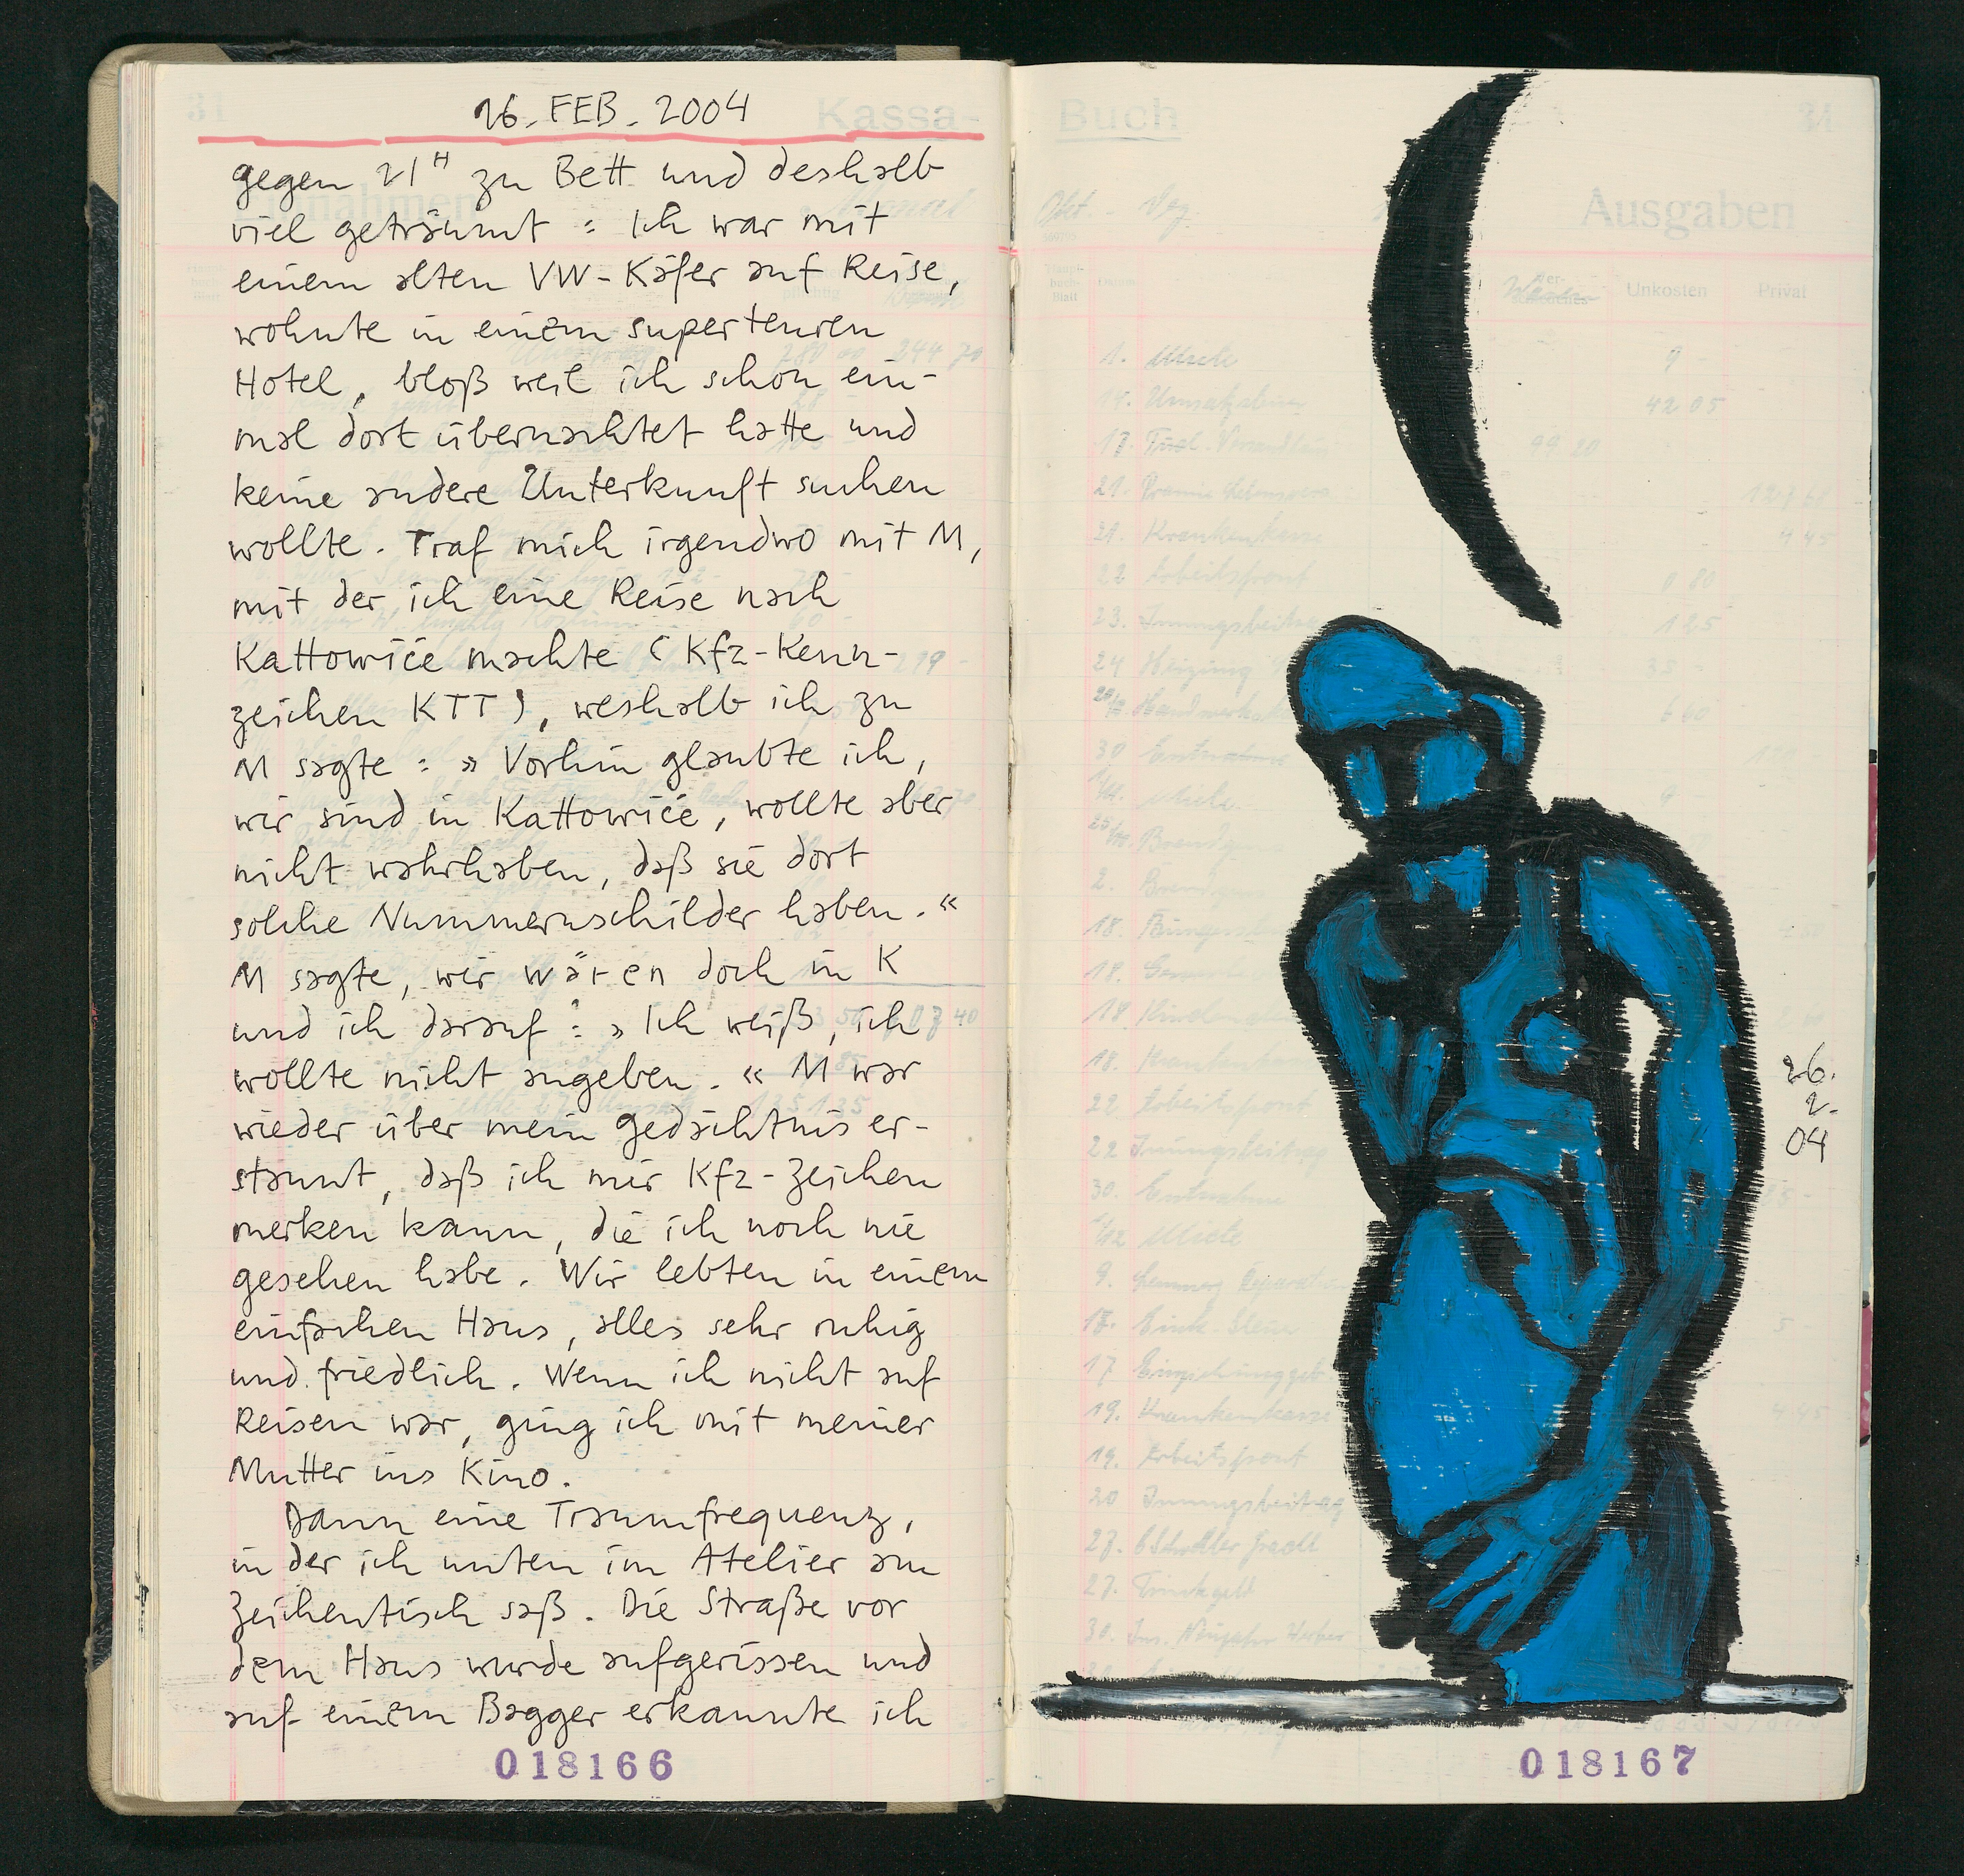 16. FEB. 2004
gegen 21H zu Bett und deshalb
viel geträumt: Ich war mit
einem alten VW-Käfer auf Reise,
wohnte in einem superteuren
Hotel, bloß weil ich schon ein-
mal dort übernachtet hatte und
keine andere Unterkunft suchen
wollte. Traf mich irgendwo mit M,
mit der ich eine Reise nach
Kattowice machte (Kfz-Kenn-
zeichen KTT), weshalb ich zu
M sagte: »Vorhin glaubte ich,
wir sind in Kattowice, wollte aber
nicht wahrhaben, daß sie dort
solche Nummernschilder haben.«
M sagte, wir wären doch in K
und ich darauf: »Ich weiß, ich
wollte nicht angeben.« M war
wieder über mein Gedächtnis er-
staunt, daß ich mir Kfz-Zeichen
merken kann, die ich noch nie
gesehen habe. Wir lebten in einem
einfachen Haus, alles sehr ruhig
und friedlich. Wenn ich nicht auf
Reisen war, ging ich mit meiner
Mutter ins Kino.
Dann eine Traumfrequenz,
in der ich unten im Atelier am
Zeichentisch saß. Die Straße vor
dem Haus wurde aufgerissen und
auf einem Bagger erkannte ich
018166
Kassa-
Buch
34
Ausgaben
Unkosten
Privat
1. Miete 9
42 05
99 20
21. Krankenkasse 4 45
22 Arbeitsfront 0 80
23. Innungsbeitrag 1 25
24 Heizung 35
22. Arbeitsfront
22 Innungsbeitrag
30. Entnahme
1/12 Miete
19. Krankenkasse
19. Arbeitsfront
20 Innungsbeitrag
27. Trinkgeld
26.
2.
04
018167